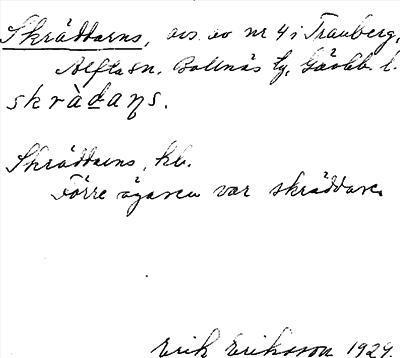 Skräddarns, avs. av nr 4 i Tranberg,
Alfta sn. Bollnäs tg, Gävleb. l.
skràdaɳs.
Skräddarns, hb.
Förre ägaren var skräddare
Erik Eriksson 1929.